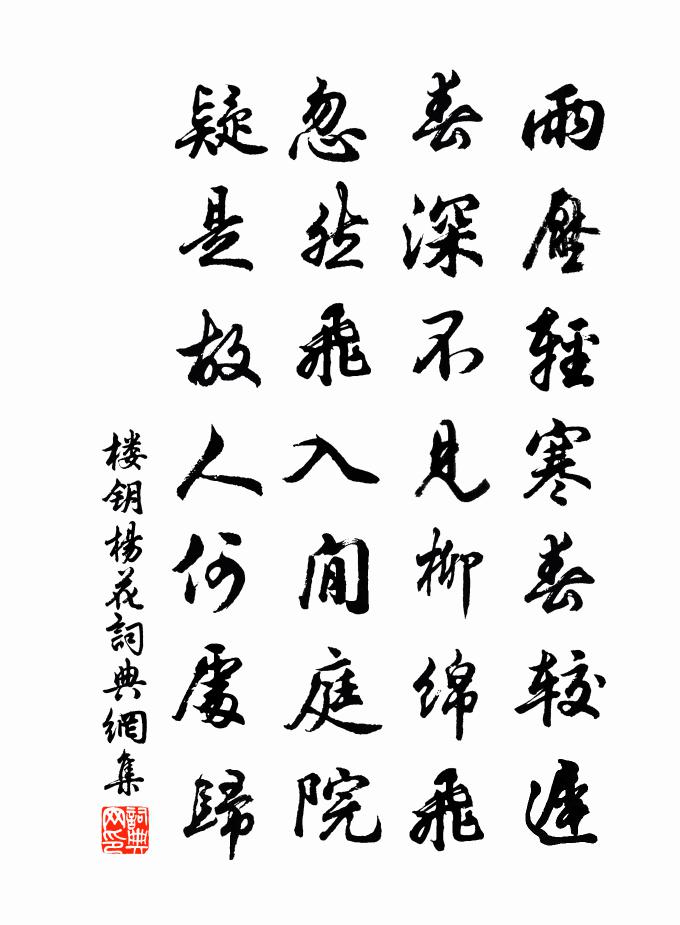 雨壓輕寒春較遲
春深不見柳綿飛
忽然飛入閒庭院
疑是故人何處歸
楼钥楊花詞典網集
詞典
网印